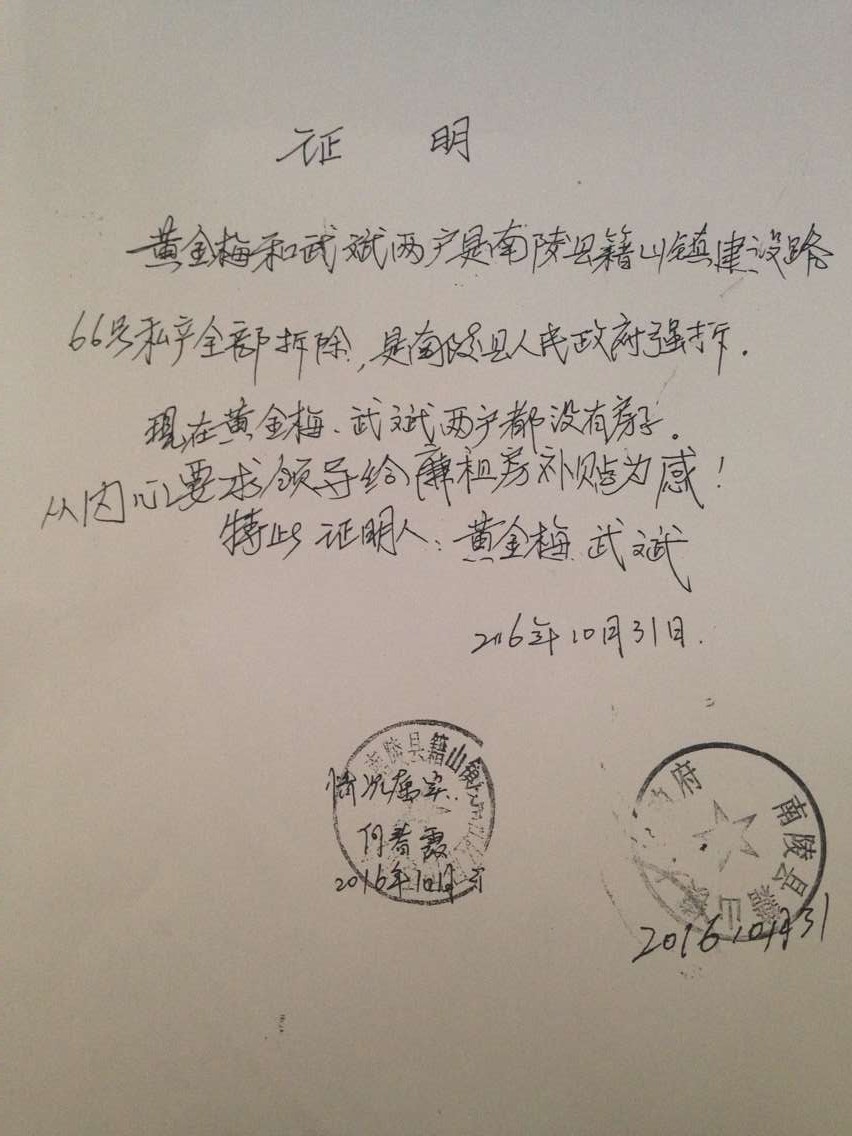 证 明
黄金梅和武斌两户是南陵县籍山镇建设路
66号私产全部拆除,是南陵县人民政府强拆.
现在黄金梅、武斌两户都没有房子。
从内心要求领导给廉租房补贴为感!
特此证明人:黄金梅 武斌
2016年10月31日.
陵县籍山镇
情况属实.
何春霞
2016年10月
府 南陵县籍山
2016 10月31